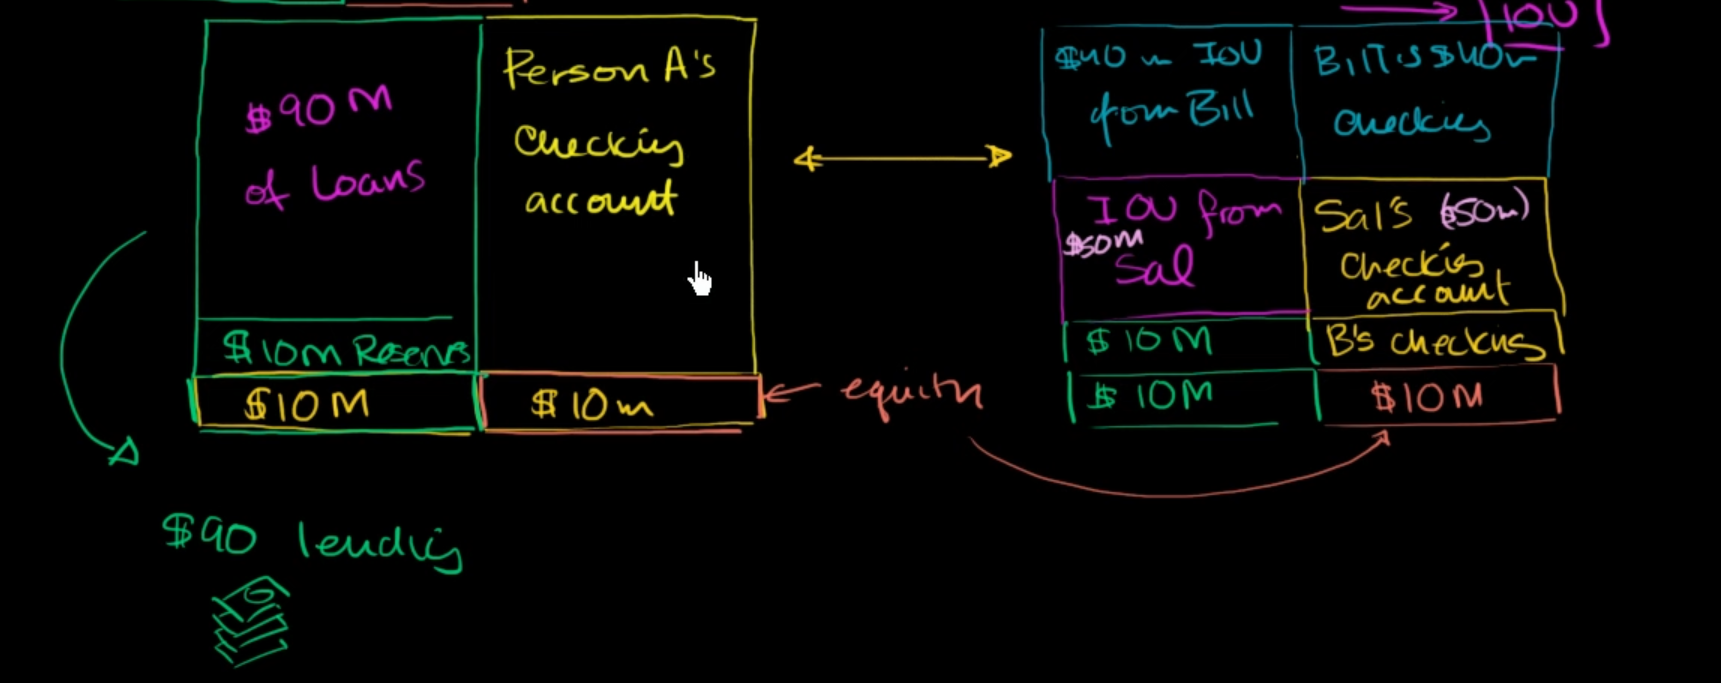 IOU
$90M
of Loans
Person A's
Checking
account
$10M Reserves
$10M
$10m
equity
$90 lending
$40m IOU
from Bill
Bill's $40m
checking
IOU from
$50M
Sal
Sal's ($50m)
Checking
account
$10M
B's checking
$10M
$10M